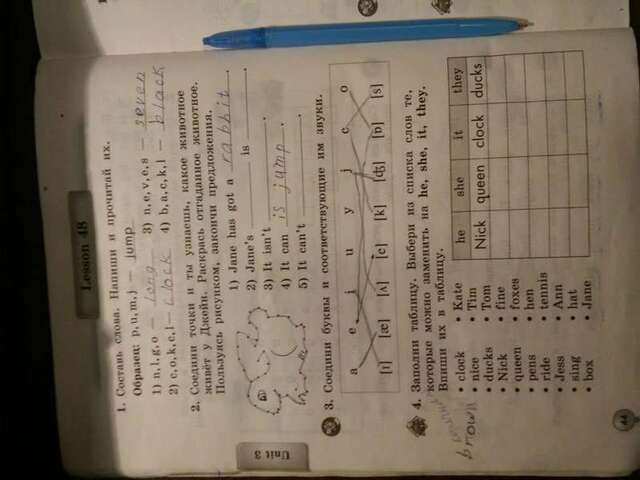 Lesson 48
1. Составь слова. Напиши и прочитай их.
Образец: p, u, m, j — jump
1) n, l, g, o — long
3) n, e, v, e, s — seven
2) c, o, k, c, l — clock
4) b, a, c, k, l — black
2. Соедини точки и ты узнаешь, какое животное
живёт у Джейн. Раскрась отгаданное животное.
Пользуясь рисунком, закончи предложения.
1) Jane has got a rabbit.
2) Jane's is
3) It isn't
4) It can is jump.
5) It can't
Unit 3
3. Соедини буквы и соответствующие им звуки.
a e i u y j c o
[ɪ] [æ] [ʌ] [e] [k] [ʤ] [ɒ] [s]
4. Заполни таблицу. Выбери из списка слов те,
которые можно заменить на he, she, it, they.
Впиши их в таблицу.
brown
• clock • Kate
• nice • Tim
• ducks • Tom
• Nick • fine
• queen • foxes
• pens • hen
• ride • tennis
• Jess • Ann
• sing • hat
• box • Jane
he she it they
Nick queen clock ducks
44